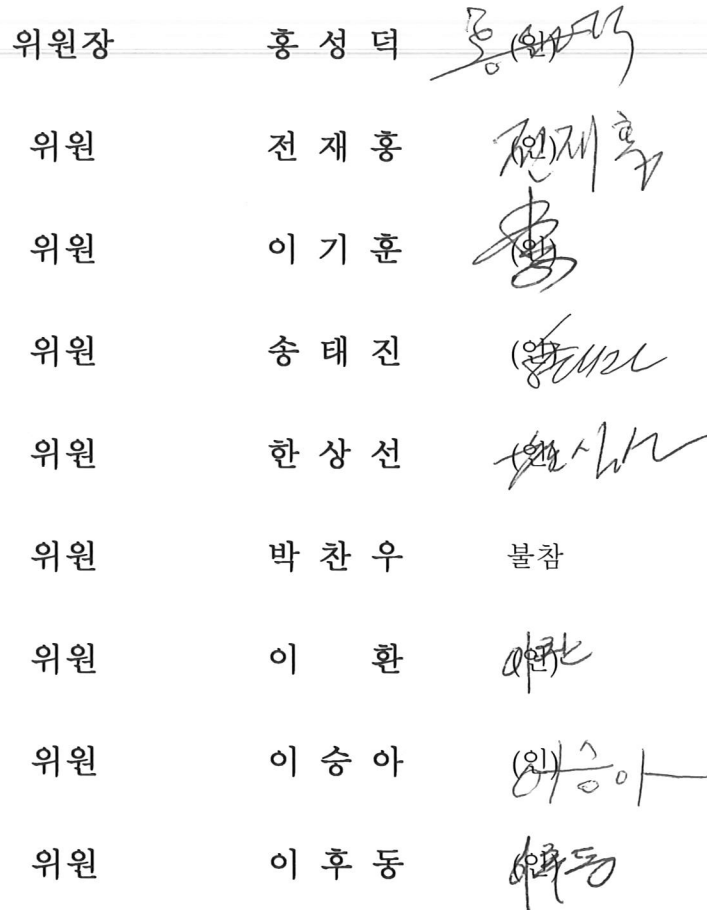 위원장 홍 성 덕 (인)
위원 전 재 홍 (인) 전재홍
위원 이 기 훈 (인)
위원 송 태 진 (인)
위원 한 상 선 (인)
위원 박 찬 우 불참
위원 이 환 (인)
위원 이 승 아 (인) 이승아
위원 이 후 동 (인)